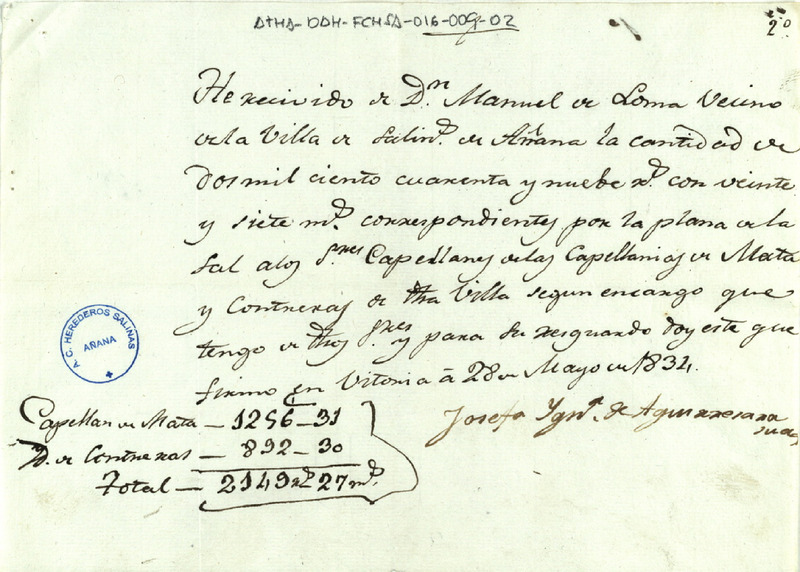 ATHA-DAH-FCHSA-016-009-02
2º
He recivido de Dn. Manuel de Loma Vecino
de la Villa de Salins. de Añana la cantidad de
dos mil ciento cuarenta y nuebe rs. con veinte
y siete ms. correspondientes por la plana de la
sal a los Sres Capellanes de las Capellanias de Mata
y Contreras de dha Villa segun encargo que
tengo de dhos Sres y para su resguardo doy este que
firmo en Vitoria á 28 de Mayo de 1831.
Josefa Ygna. de Aguirresara
A.C. HEREDEROS SALINAS
AÑANA
Capellan de Mata — 1256 — 31
D. de Contreras — 892 — 30
Total — 2149 rs 27 ms.